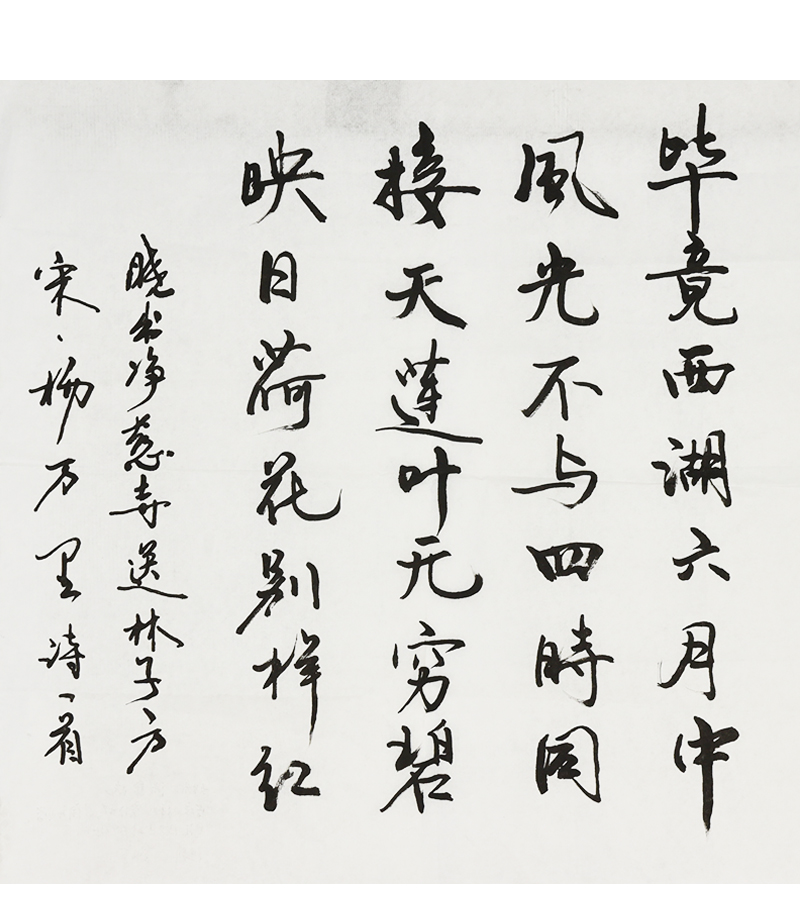 毕竟西湖六月中
風光不与四時同
接天蓮叶无穷碧
映日荷花别样红
晓出净慈寺送林子方
宋、杨万里诗一首